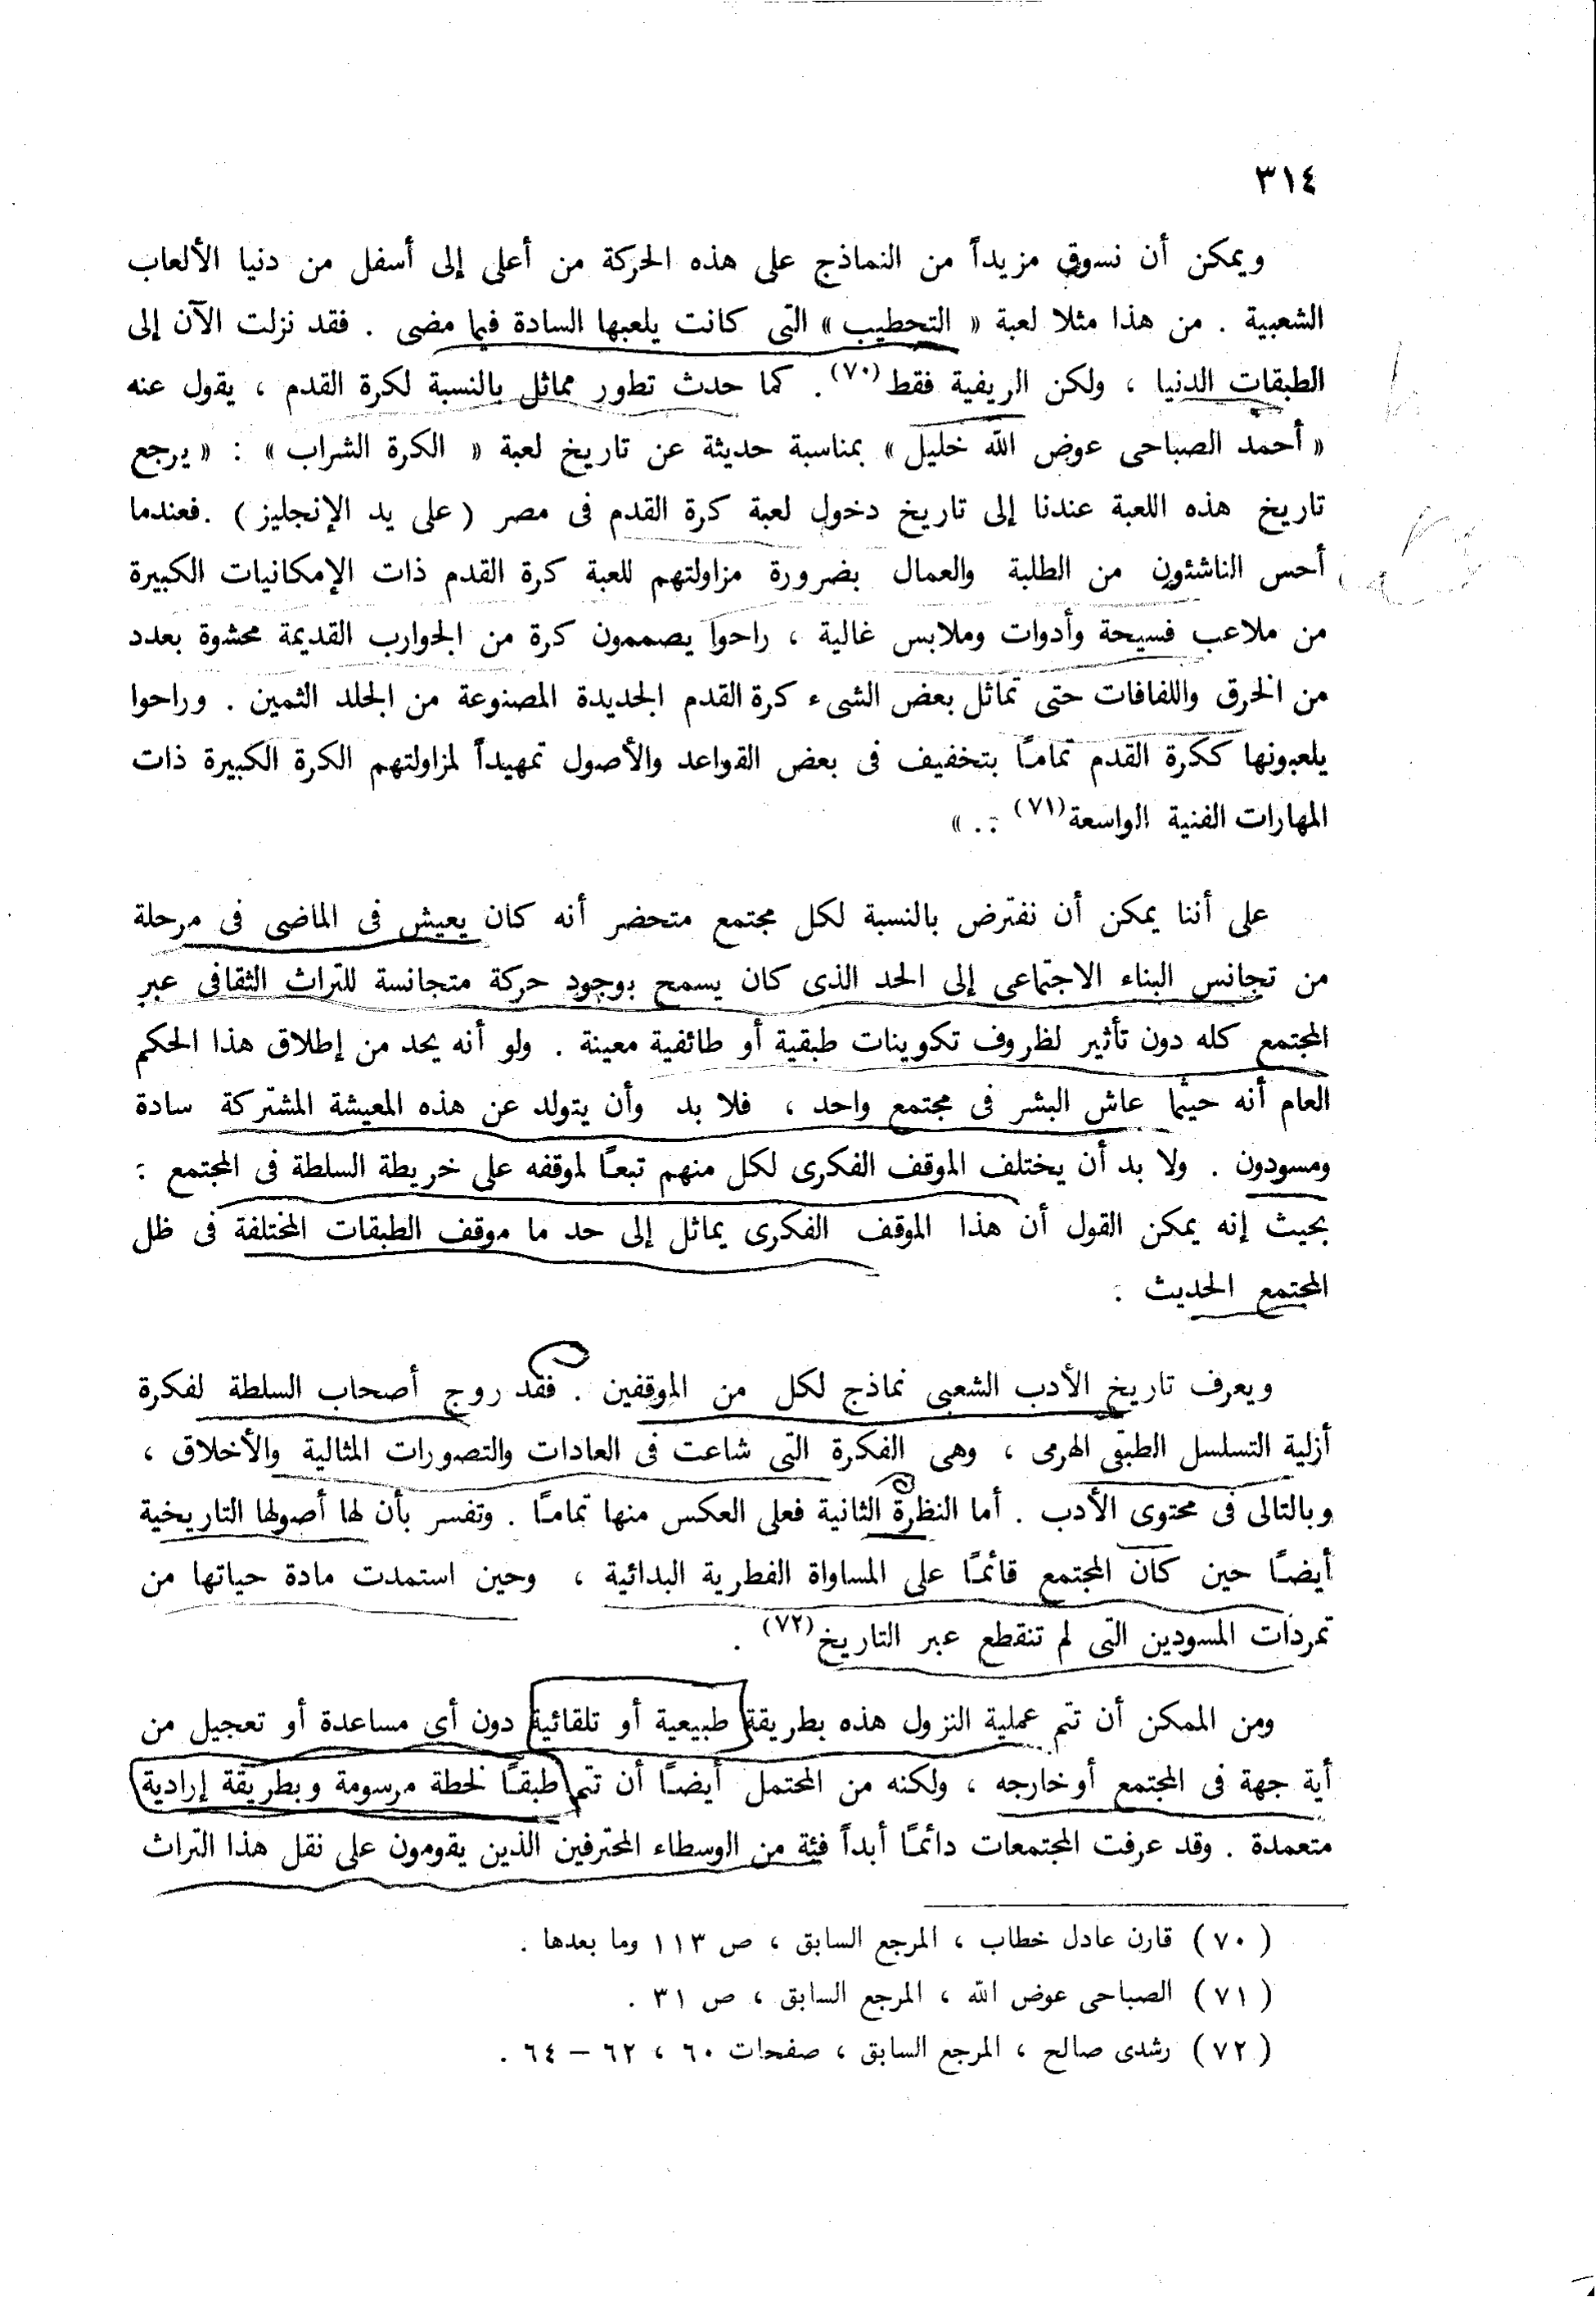 ٣١٤
ويمكن أن نسوق مزيداً من النماذج على هذه الحركة من أعلى إلى أسفل من دنيا الألعاب
الشعبية . من هذا مثلا لعبة « التحطيب » التى كانت يلعبها السادة فيما مضى . فقد نزلت الآن إلى
الطبقات الدنيا ، ولكن الريفية فقط (٧٠) . كما حدث تطور مماثل بالنسبة لكرة القدم ، يقول عنه
« أحمد الصباحى عوض الله خليل » بمناسبة حديثة عن تاريخ لعبة « الكرة الشراب » : « يرجع
تاريخ هذه اللعبة عندنا إلى تاريخ دخول لعبة كرة القدم فى مصر ( على يد الإنجليز ) . فعندما
أحس الناشئون من الطلبة والعمال بضرورة مزاولتهم للعبة كرة القدم ذات الإمكانيات الكبيرة
من ملاعب فسيحة وأدوات وملابس غالية ، راحوا يصممون كرة من الجوارب القديمة محشوة بعدد
من الخرق واللفافات حتى تماثل بعض الشىء كرة القدم الجديدة المصنوعة من الجلد الثمين . وراحوا
يلعبونها ككرة القدم تمامًا بتخفيف فى بعض القواعد والأصول تمهيداً لمزاولتهم الكرة الكبيرة ذات
المهارات الفنية الواسعة (٧١) . . »
على أننا يمكن أن نفترض بالنسبة لكل مجتمع متحضر أنه كان يعيش فى الماضى فى مرحلة
من تجانس البناء الاجتماعى إلى الحد الذى كان يسمح بوجود حركة متجانسة للتراث الثقافى عبر
المجتمع كله دون تأثير لظروف تكوينات طبقية أو طائفية معينة . ولو أنه يحد من إطلاق هذا الحكم
العام أنه حيثما عاش البشر فى مجتمع واحد ، فلا بد وأن يتولد عن هذه المعيشة المشتركة سادة
ومسودون . ولا بد أن يختلف الموقف الفكرى لكل منهم تبعًا لموقفه على خريطة السلطة فى المجتمع :
بحيث إنه يمكن القول أن هذا الموقف الفكرى يماثل إلى حد ما موقف الطبقات المختلفة فى ظل
المجتمع الحديث :
ويعرف تاريخ الأدب الشعبى نماذج لكل من الموقفين . فقد روج أصحاب السلطة لفكرة
أزلية التسلسل الطبقى الهرمى ، وهى الفكرة التى شاعت فى العادات والتصورات المثالية والأخلاق ،
وبالتالى فى محتوى الأدب . أما النظرة الثانية فعلى العكس منها تمامًا . وتفسر بأن لها أصولها التاريخية
أيضًا حين كان المجتمع قائمًا على المساواة الفطرية البدائية ، وحين استمدت مادة حياتها من
تمردات المسودين التى لم تنقطع عبر التاريخ (٧٢) .
ومن الممكن أن تتم عملية النزول هذه بطريقة طبيعية أو تلقائية دون أى مساعدة أو تعجيل من
أية جهة فى المجتمع أو خارجه ، ولكنه من المحتمل أيضًا أن تتم طبقًا لخطة مرسومة وبطريقة إرادية
متعمدة . وقد عرفت المجتمعات دائمًا أبداً فئة من الوسطاء المحترفين الذين يقومون على نقل هذا التراث
( ٧٠ ) قارن عادل خطاب ، المرجع السابق ، ص ١١٣ وما بعدها .
( ٧١ ) الصباحى عوض الله ، المرجع السابق ، ص ٣١ .
( ٧٢ ) رشدى صالح ، المرجع السابق ، صفحات ٦٠ ، ٦٢ – ٦٤ .